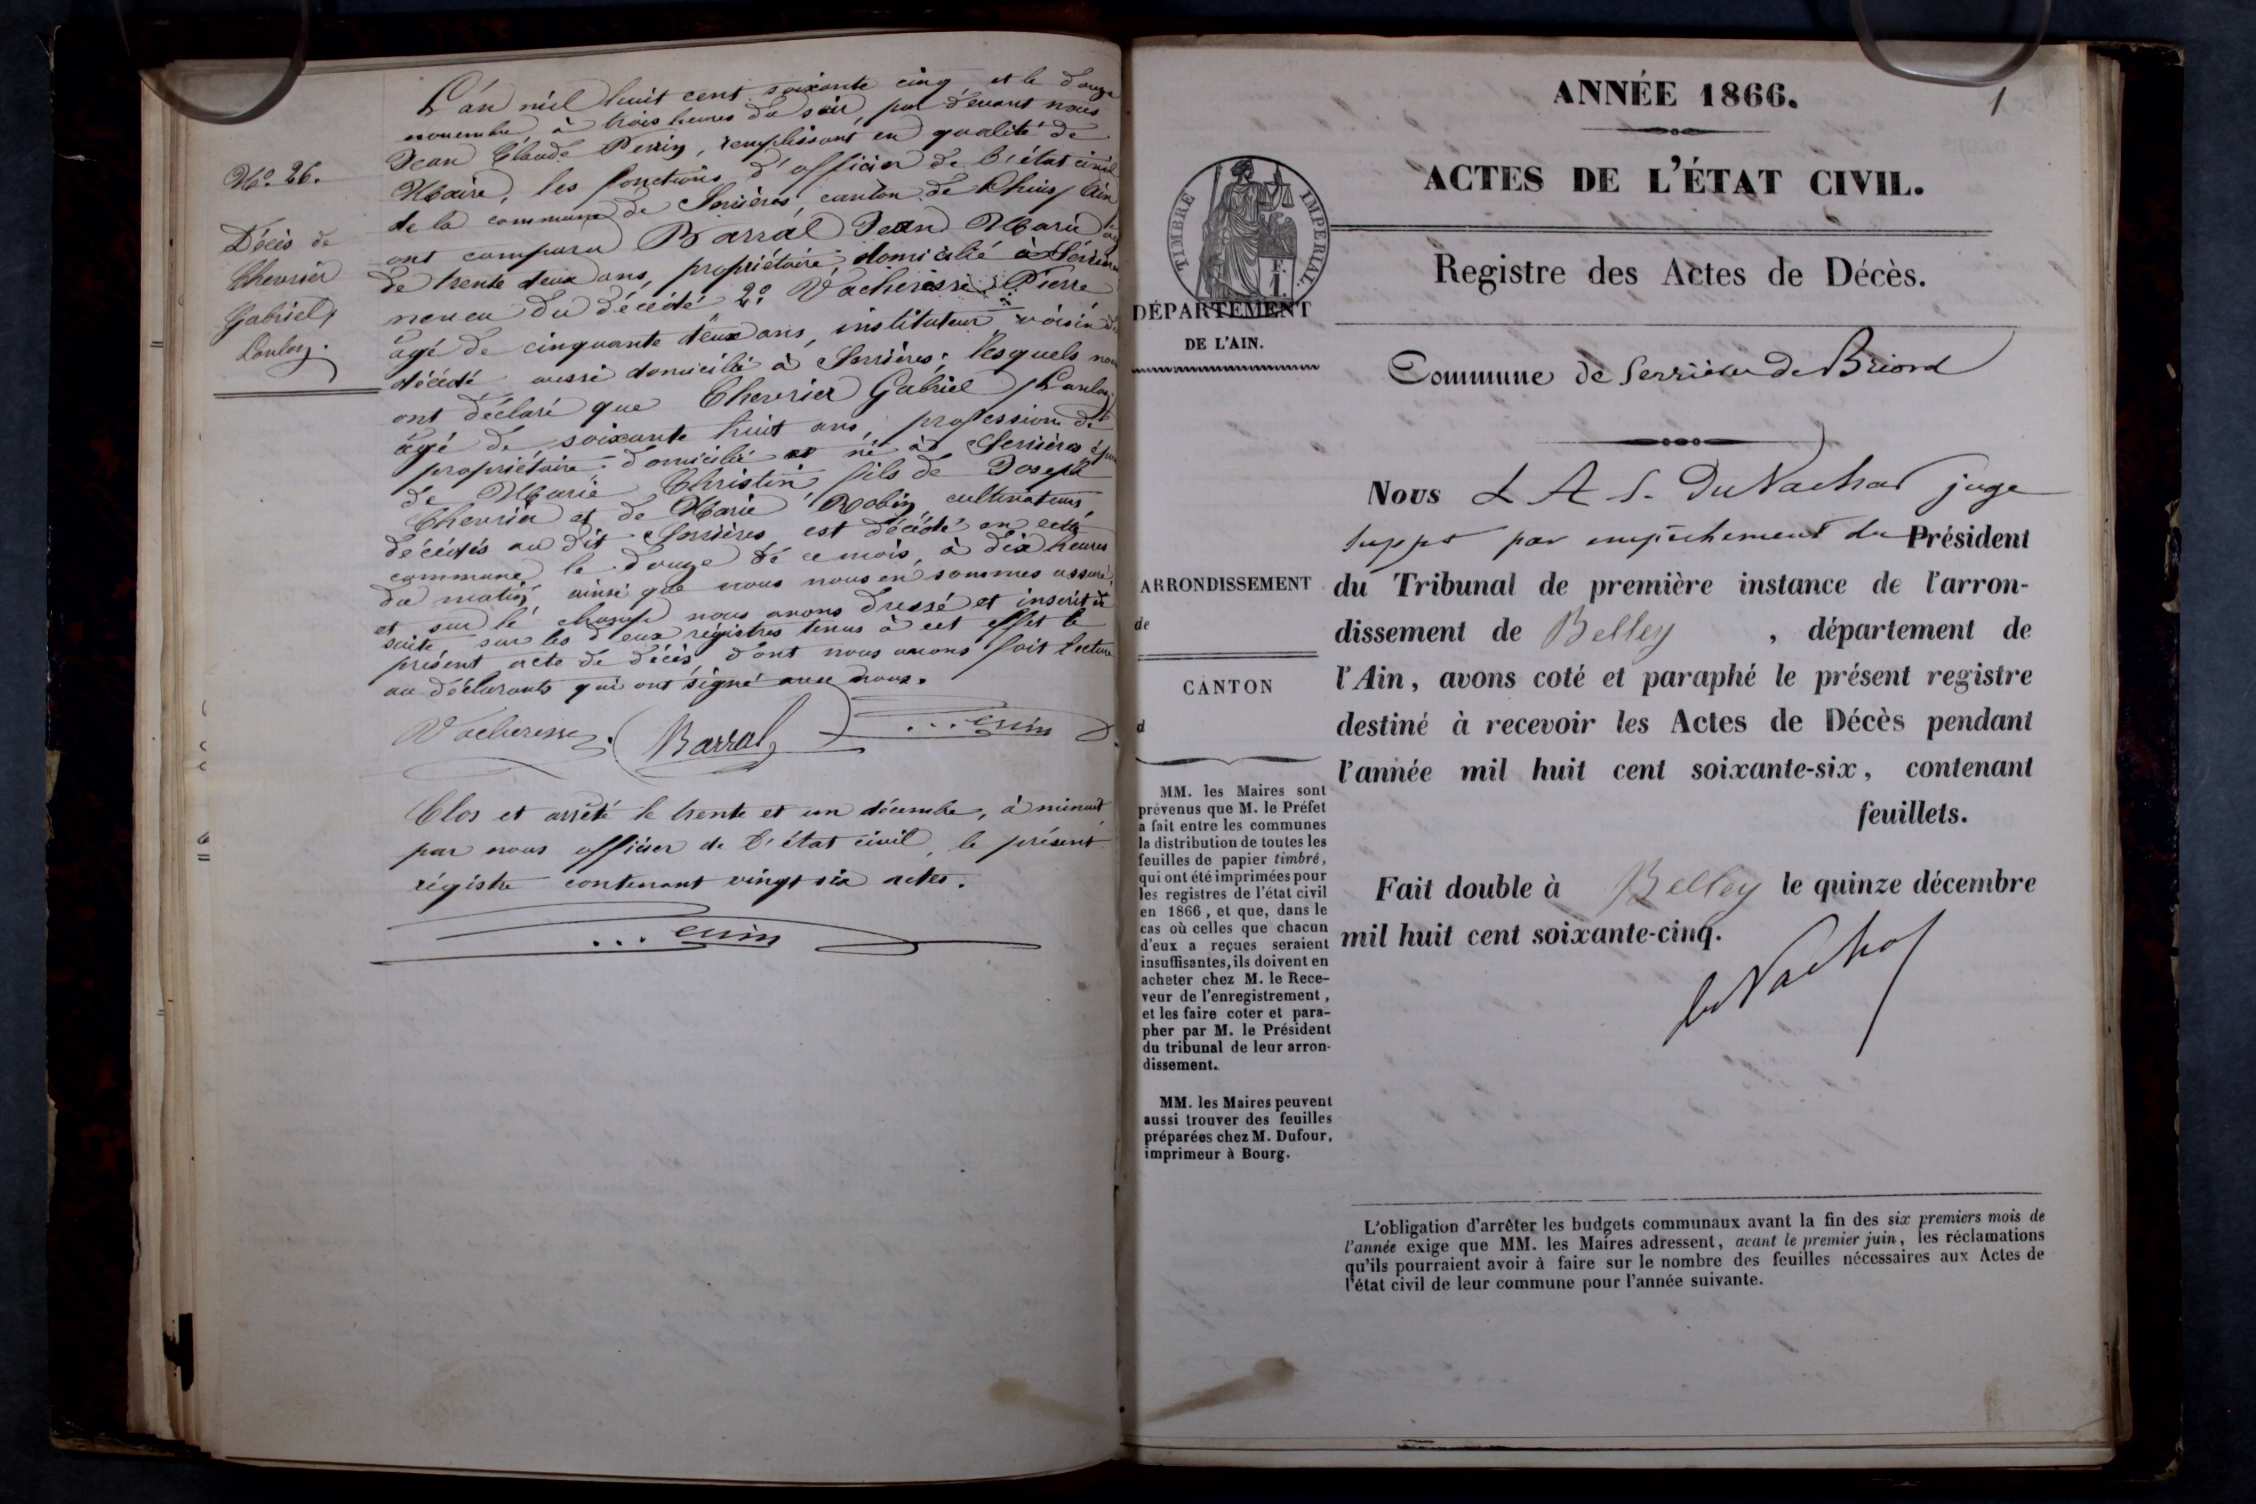 L'an mil huit cent soixante cinq et le douze
novembre, à trois heures du soir, par devant nous
Jean Claude Perrin, remplissant en qualité de
Maire, les fonctions d'officier de l'état civil
de la commune de Serrières, canton de Lhuis, Ain
ont comparu Barral Jean Marie
de trente deux ans, propriétaire domicilié à Serrières
neveu du décédé 2º Vacheresse Pierre
âgé de cinquante deux ans, instituteur, voisin du
décédé aussi domicilié à Serrières; lesquels nous
ont déclaré que Chevrier Gabriel,
âgé de soixante huit ans, profession de
propriétaire domicilié et né à Serrières
de Marie Christin fils de Joseph
Chevrier et de Marie Robin, cultivateurs,
décédés au dit Serrières, est décédé en cette
commune le douze de ce mois, à dix heures
du matin ainsi que nous nous en sommes assuré,
et sur le champ nous avons dressé et inscrit de
suite sur les deux régistres tenus à cet effet le
présent acte de décès dont nous avons fait lecture
au déclarants qui ont signé avec nous.
Vacheresse. Barral Perrin
Clos et arrêté le trente et un décembre, à minuit
par nous officier de l'état civil, le présent
régistre contenant vingt six actes.
Perrin
Nº. 26.
Décès de
Chevrier
Gabriel,
1
ANNÉE 1866.
ACTES DE L'ÉTAT CIVIL.
Registre des Actes de Décès.
Commune de Serrières de Briord
TIMBRE IMPERIAL.
1 F.
DÉPARTEMENT
DE L'AIN.
ARRONDISSEMENT
de
CANTON
d
MM. les Maires sont
prévenus que M. le Préfet
a fait entre les communes
la distribution de toutes les
feuilles de papier timbré,
qui ont été imprimées pour
les registres de l'état civil
en 1866, et que, dans le
cas où celles que chacun
d'eux a reçues seraient
insuffisantes, ils doivent en
acheter chez M. le Rece-
veur de l'enregistrement,
et les faire coter et para-
pher par M. le Président
du tribunal de leur arron-
dissement.
MM. les Maires peuvent
aussi trouver des feuilles
préparées chez M. Dufour,
imprimeur à Bourg.
Nous L A S. Du Vachat juge
suppt par empêchement du Président
du Tribunal de première instance de l'arron-
dissement de Belley, département de
l'Ain, avons coté et paraphé le présent registre
destiné à recevoir les Actes de Décès pendant
l'année mil huit cent soixante-six, contenant
feuillets.
Fait double à Belley le quinze décembre
mil huit cent soixante-cinq.
du Vachat
L'obligation d'arrêter les budgets communaux avant la fin des six premiers mois de
l'année exige que MM. les Maires adressent, avant le premier juin, les réclamations
qu'ils pourraient avoir à faire sur le nombre des feuilles nécessaires aux Actes de
l'état civil de leur commune pour l'année suivante.